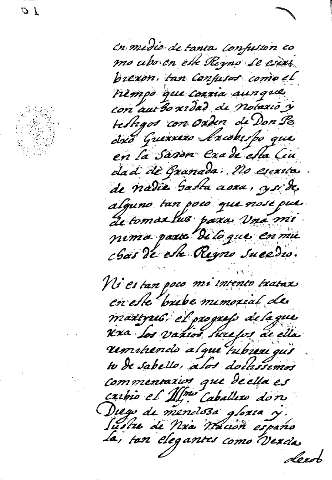 51
en medio de tanta confusion co
mo ubo en este Reyno se escri
bieron, tan confusos como el
tiempo que corria aunque
con authoridad de Notario y
testigos con orden de Don Pe
dro Guerrero Arcobispo que
en la Sazon era de esta Ciu
dad de Granada. No escrita
de nadie hasta aora, y si de
alguno tan poco que no se pue
de tomar luz para Una mi
nima parte de lo que en mu
chas de este Reyno Sucedio.
Ni es tan poco mi intento tratar
en este brebe memorial de
martyres, el progreso de la gue
rra. los varios sucesos de ella
remitiendo al que tubiere gus
to de sabello, a los doctissimos
commentarios que de ella es
cribio el Illmo Caballero don
Diego de mendoza gloria y
lustre de Nra Nacion españo
la, tan elegantes como Verda
deros